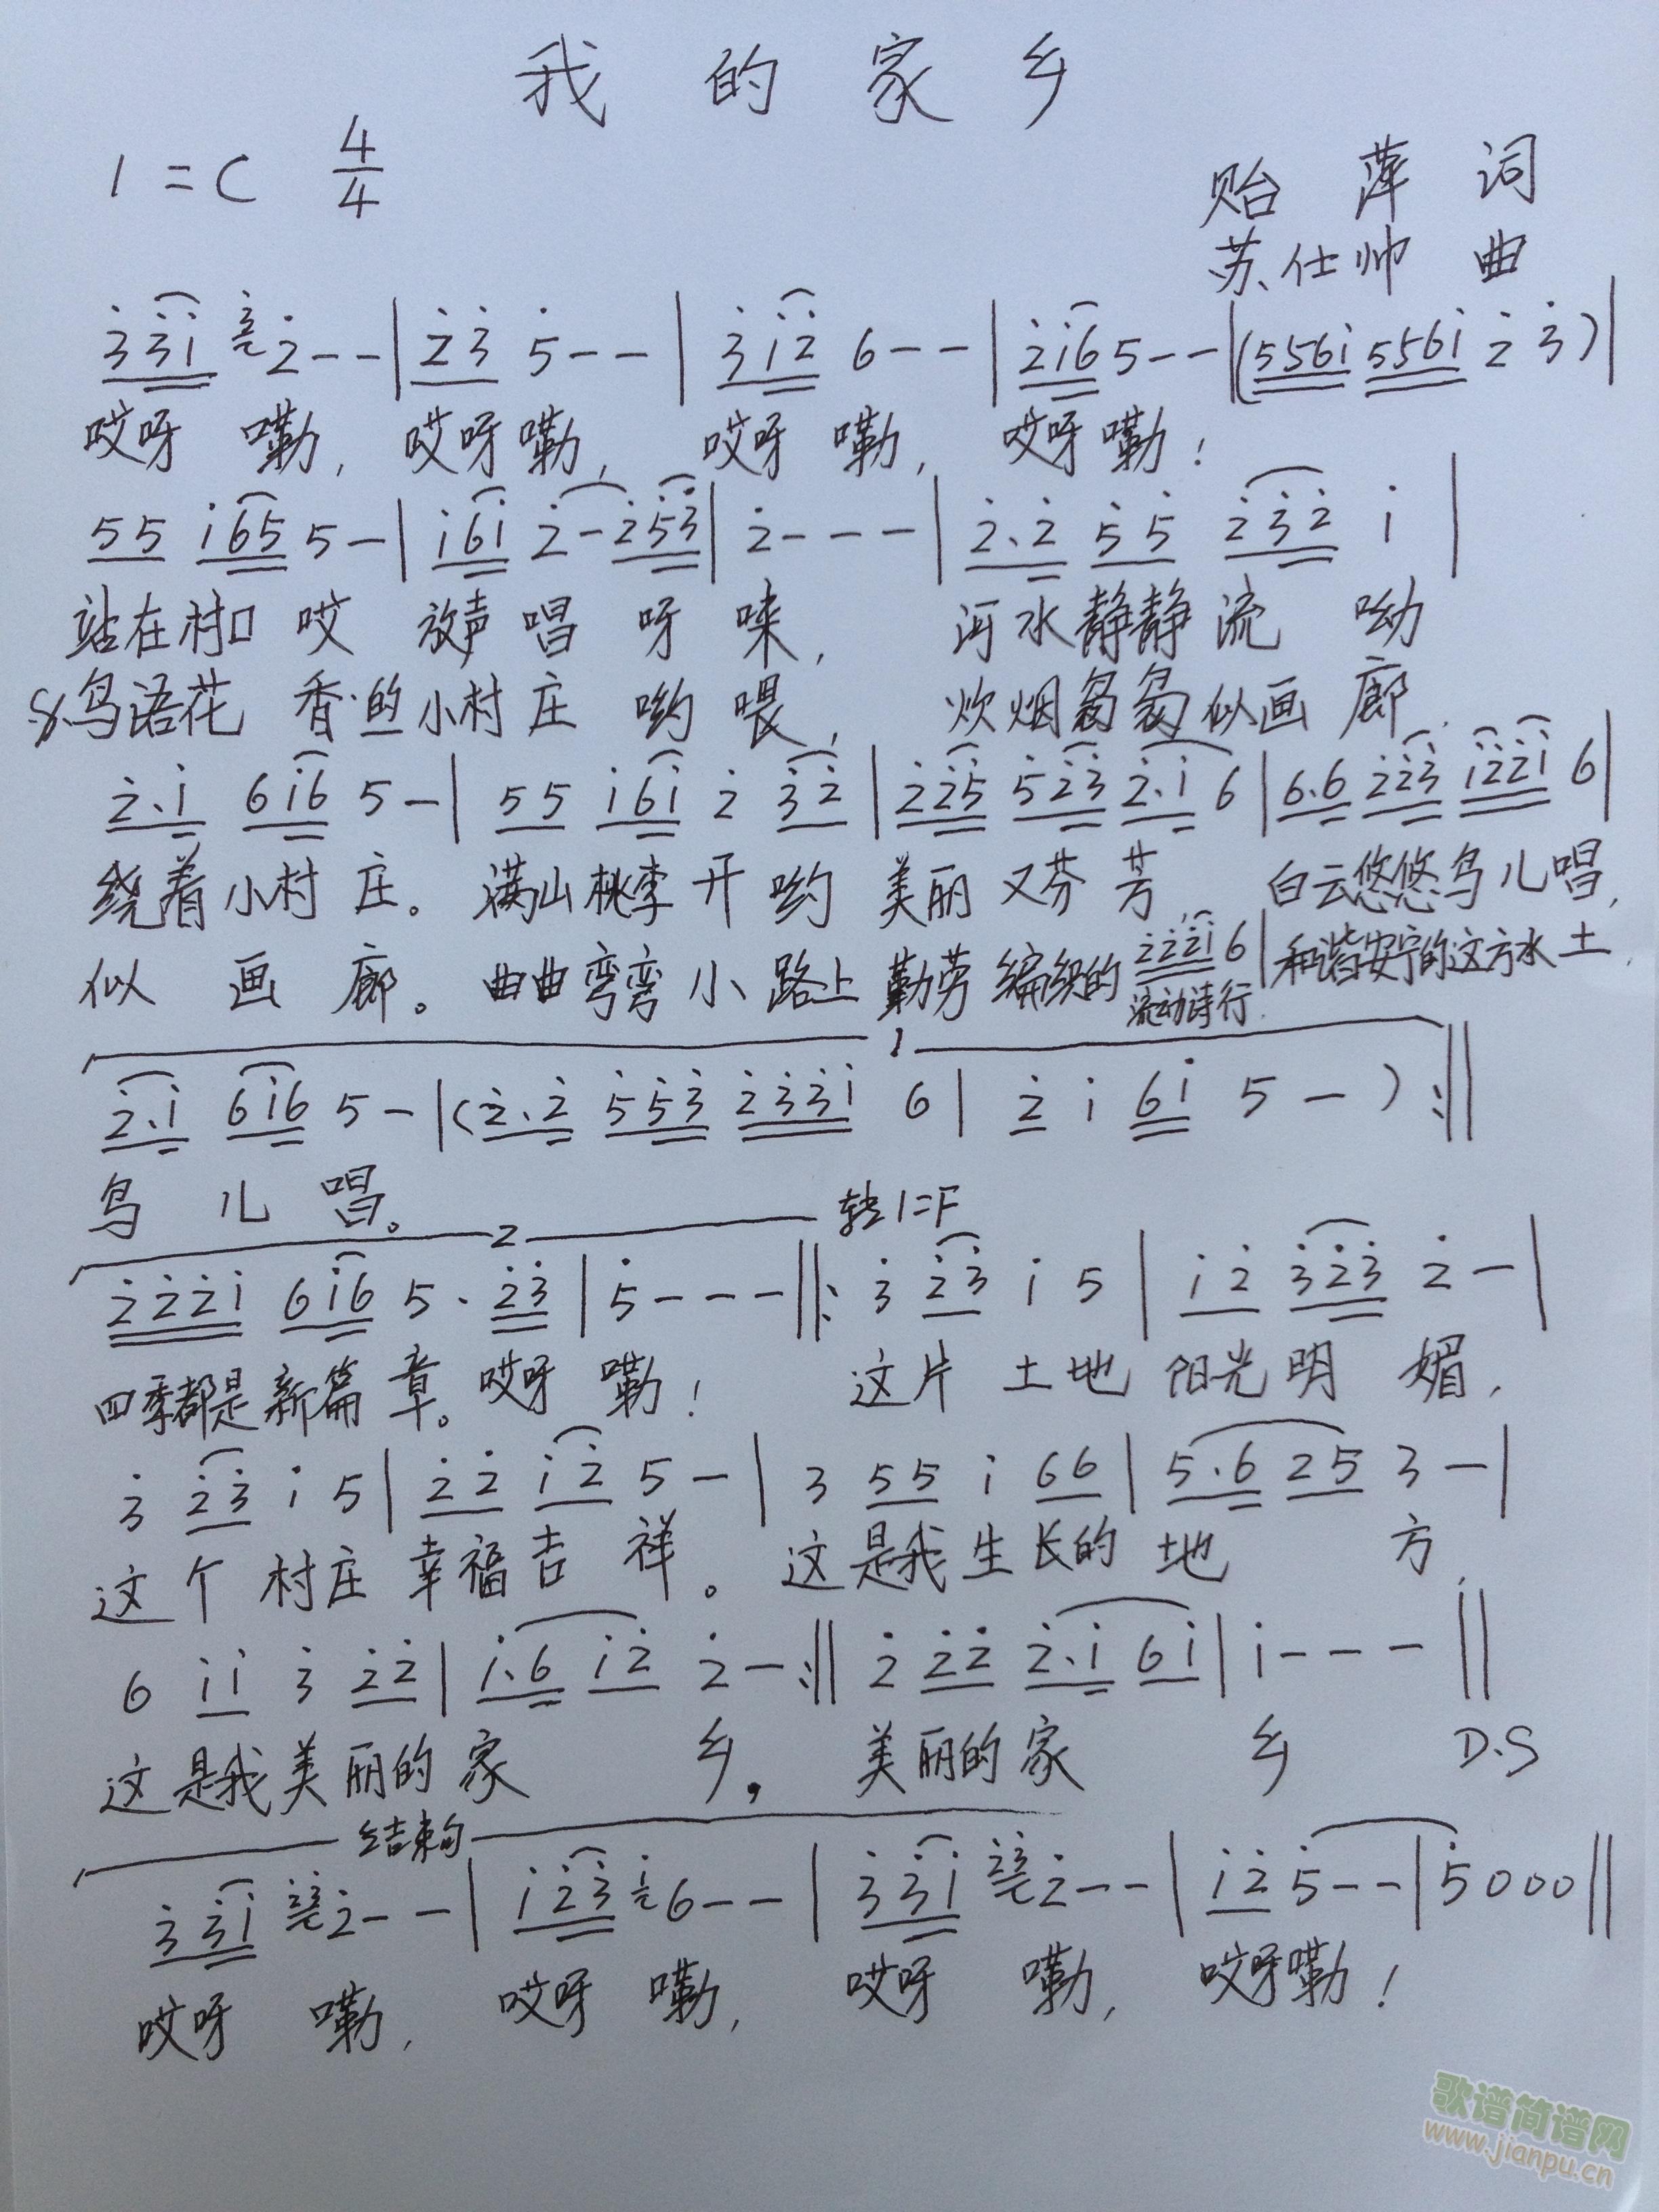 我的家乡
1=C 4/4
贻萍 词
苏仕帅 曲
3 3 1 3 2 - - | 2 3 5 - - | 3 1 2 6 - - | 2 1 6 5 - - | (5561 5561 2 3) |
哎呀 嘞, 哎呀嘞, 哎呀 嘞, 哎呀嘞!
5 5 1 6 5 5 - | 1 6 1 2 - 2 5 3 | 2 - - - | 2. 2 5 5 2 3 2 1 |
站在村口 哎 放声 唱 呀 唻, 河水静静 流 呦
鸟语花 香的小村 庄 哟 喂, 炊烟袅袅似画 廊.
2. 1 6 1 6 5 - | 5 5 1 6 1 2 3 2 | 2 2 5 5 2 3 2. 1 6 | 6. 6 2 2 3 1 2 2 1 6 |
绕着小村 庄。 满山桃李 开 哟 美丽 又芬 芳, 白云悠悠鸟儿唱,
2 2 2 1 6 |
似 画 廊。 曲曲弯弯 小 路上 勤劳 编织的 流动诗行. 和谐安宁的这方水土,
1
2. 1 6 1 6 5 - | (2. 2 5 5 3 2 3 3 1 6 | 2 1 6 1 5 - ) :||
鸟 儿 唱。
2 转1=F
2 2 2 1 6 1 6 5 . 2 3 | 5 - - - ||: 3 2 3 1 5 | 1 2 3 2 3 2 - |
四季都是新篇 章。哎呀 嘞! 这片 土地 阳光明 媚,
3 2 3 1 5 | 2 2 1 2 5 - | 3 5 5 1 6 6 | 5. 6 2 5 3 - |
这个 村庄 幸福吉 祥。 这是我生长的 地 方,
6 1 1 3 2 2 | 1. 6 1 2 2 - :|| 2 2 2 2. 1 6 1 | 1 - - - ||
这是我美丽的 家 乡, 美丽的家 乡 D.S
结束句
3 3 1 2 3 2 - - | 1 2 3 1 6 - - | 3 3 1 2 3 2 - - | 1 2 5 - - | 5 0 0 0 ||
哎呀 嘞, 哎呀 嘞, 哎呀 嘞, 哎呀嘞!
歌谱简谱网
www.jianpu.cn